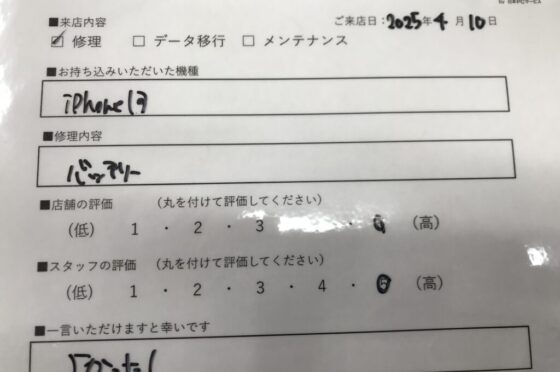 ■来店内容
ご来店日：2025年4月10日
☑ 修理 □ データ移行 □ メンテナンス
■お持ち込みいただいた機種
iPhone13
■修理内容
バッテリー
■店舗の評価 （丸を付けて評価してください）
（低） 1 ・ 2 ・ 3 ・ 5 （高）
■スタッフの評価 （丸を付けて評価してください）
（低） 1 ・ 2 ・ 3 ・ 4 ・ 5 （高）
■一言いただけますと幸いです